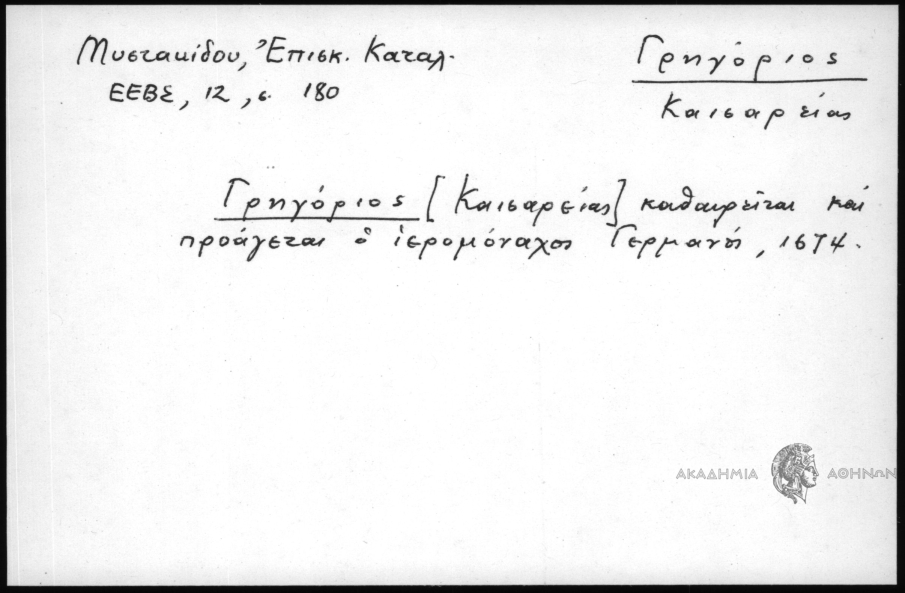 Μυστακίδου, Ἐπισκ. Καταλ.
ΕΕΒΣ, 12, σ. 180
Γρηγόριος
Καισαρείας
Γρηγόριος [Καισαρείας] καθαιρεῖται καὶ
προάγεται ὁ ἱερομόναχος Γερμανός, 1674.
ΑΚΑΔΗΜΙΑ ΑΘΗΝΩΝ